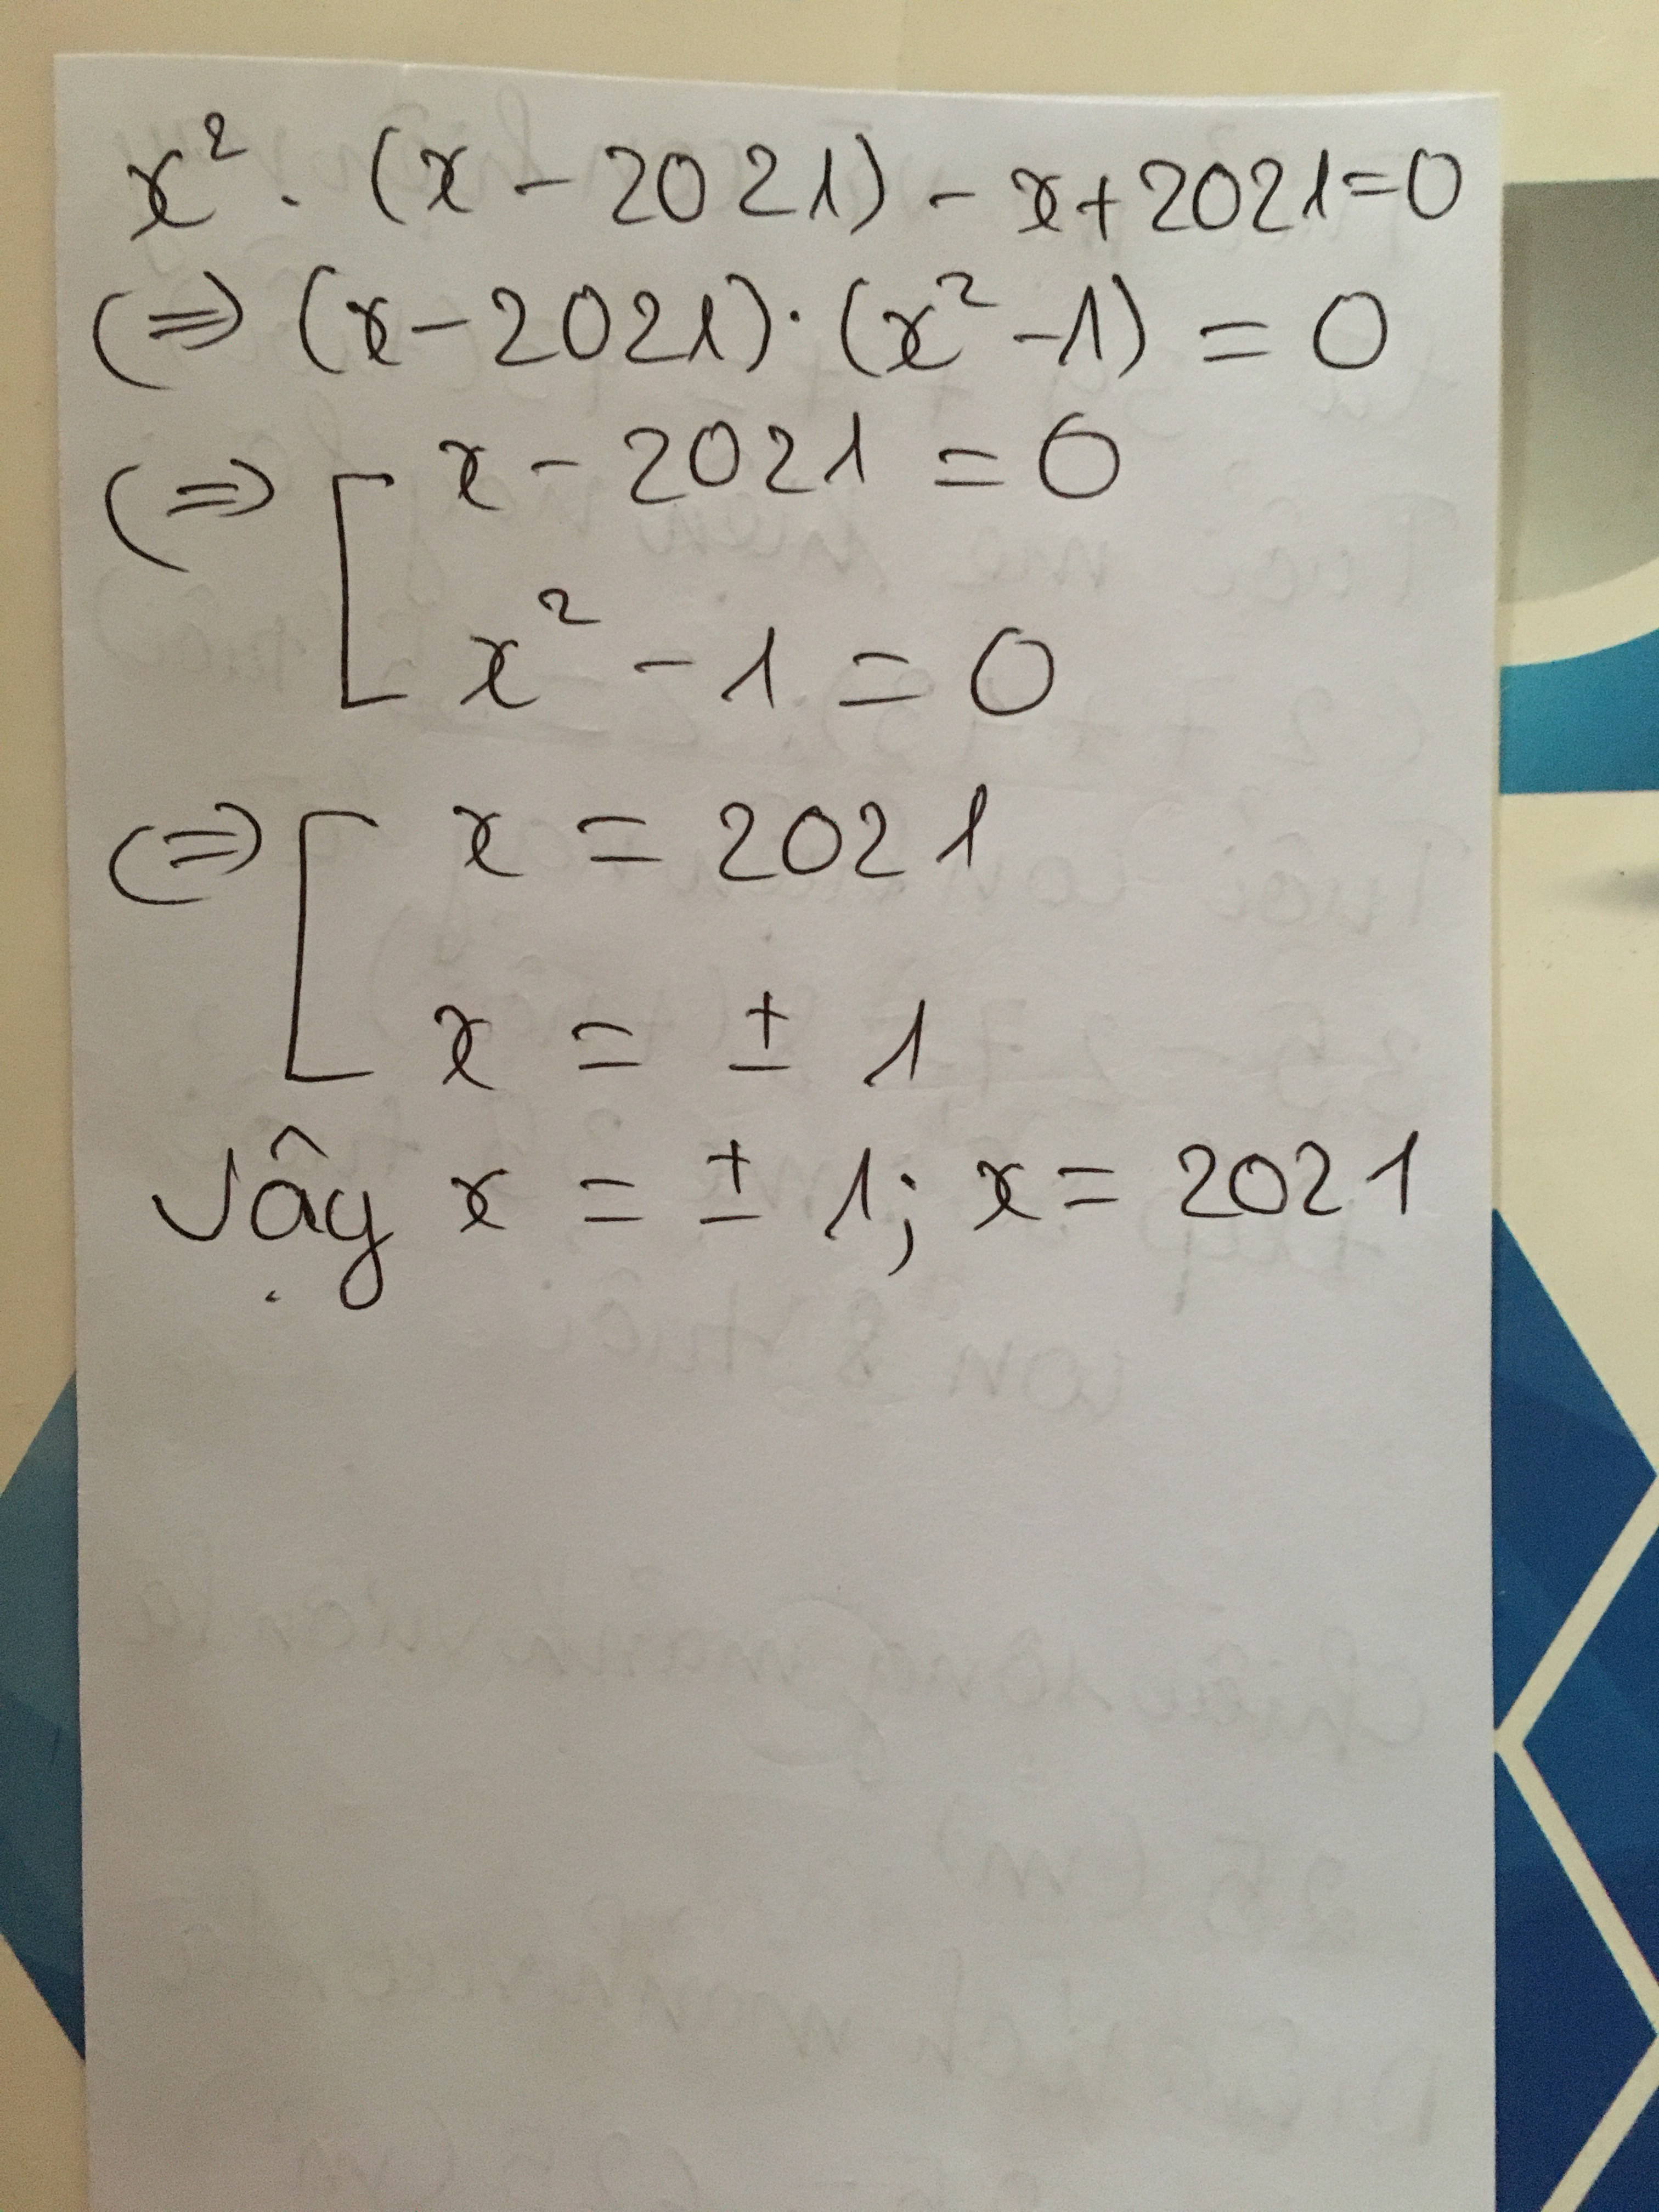 x² . (x - 2021) - x + 2021 = 0
(=) (x - 2021) . (x² - 1) = 0
(=) [ x - 2021 = 0
x² - 1 = 0
(=) [ x = 2021
x = ± 1
Vậy x = ± 1; x = 2021